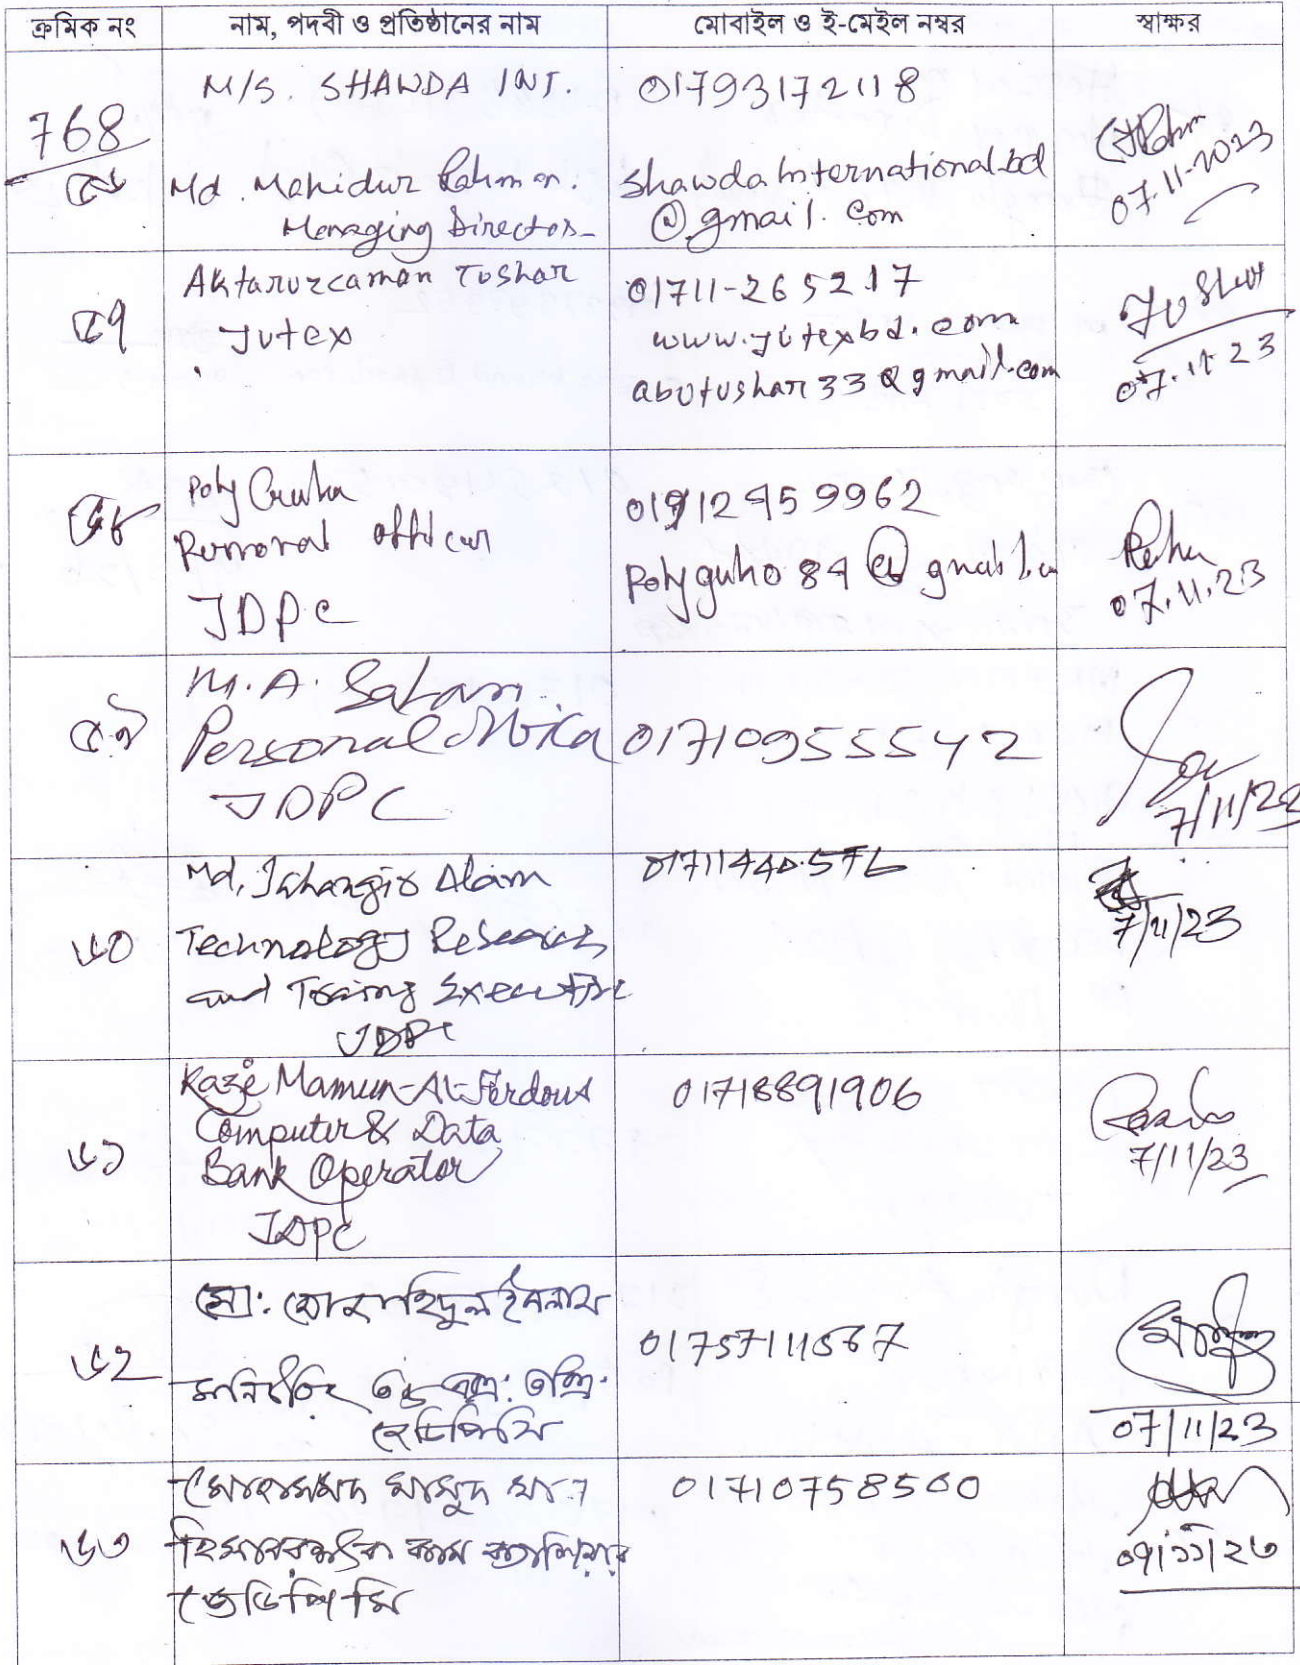 ক্রমিক নং নাম, পদবী ও প্রতিষ্ঠানের নাম মোবাইল ও ই-মেইল নম্বর স্বাক্ষর
768
৫৬
M/S. SHAWDA INT.
Md. Mahidur Rahman.
Managing Director
01793172118
Shawda International.bd
@gmail.com
07.11.2023
৫৭
Aktaruzzaman Tushar
Jutex
01711-265217
www.jutexbd.com
abutushar33@gmail.com
Tushar
07.11.23
৫৮
Poly Guha
Personal officer
JDPC
polyguho84@gmail.com
07.11.23
৫৯
M.A. Salam
Personal Officer
JDPC
01710955542
7/11/23
৬০
Md. Jahangir Alam
Technology Research
and Training Executive
JDPC
01711440576
7/11/23
৬১
Kazi Mamun-Al-Ferdous
Computer & Data
Bank Operator
JDPC
01718891906
7/11/23
৬২
মো: তোহাহিদুল ইসলাম
জেডিপিসি
07/11/23
৬৩
মোহাম্মদ মাসুদ খান
হিসাবরক্ষক কাম ক্যাশিয়ার
জেডিপিসি
01710758500
০৭/১১/২৩